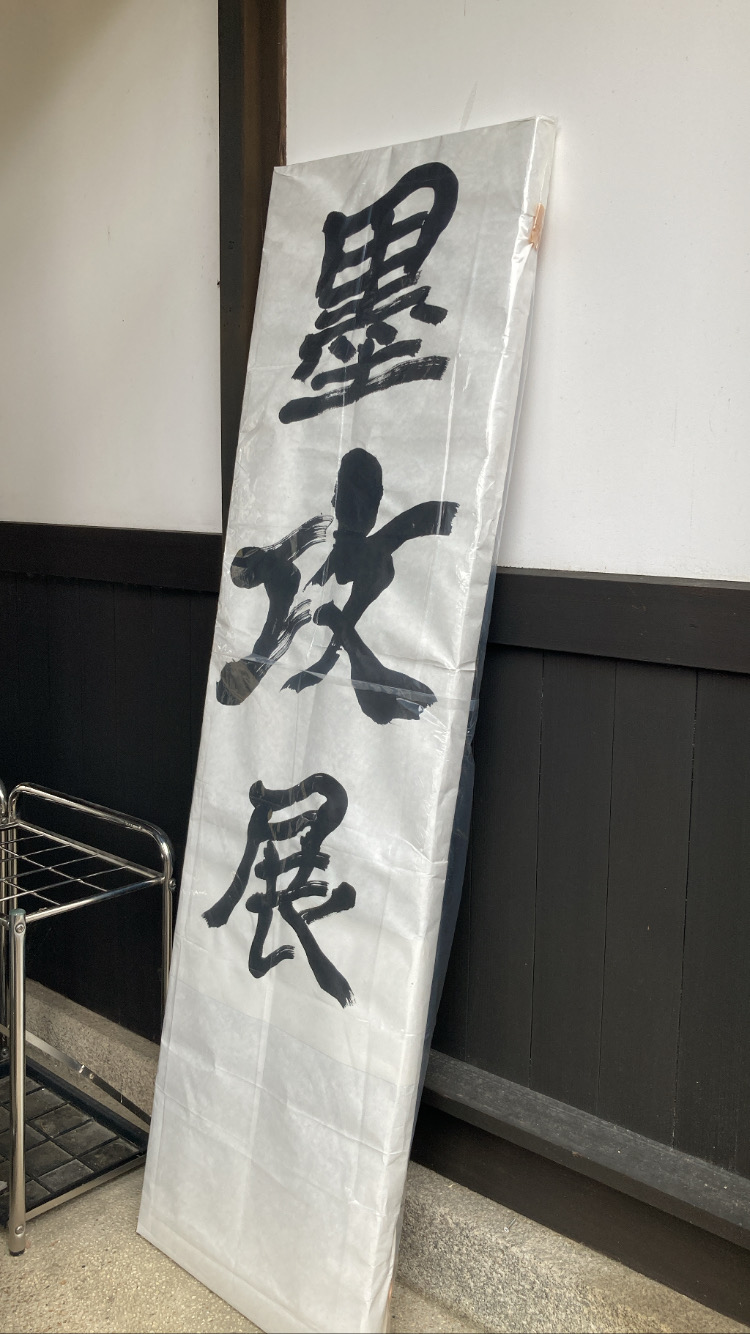 墨攻展